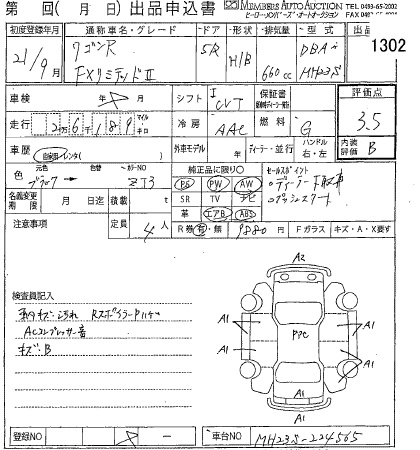 第 回( 月 日) 出品申込書 MEMBERS AUTO AUCTION TEL 0493-65-2002
ヒーロー・メンバーズ・オートオークション FAX 0493
初度登録年月 通称車名・グレード ドア 形状 排気量 型式 出品
21/9月 ワゴンR FXリミテッドII 5/R H/B 660cc DBA- MH23S 1302
車検 年 月 シフト I CVT 保証書 評価点
走行 2万6千189 マイル キロ 冷房 AAC 燃料 G 3.5
車歴 自家用・レンタ( ) 外車モデル 年 ディーラー・並行 ハンドル 右・左 内装評価 B
色 元色 ブラック 色替 カラーNO ZJ3 純正品に限り○ セールスポイント
PS PW AW ○ディーラー下取車
名義変更期限 月 日迄 積載 t SR TV ナビ ○プッシュスタート
革 エアB ABS
注意事項 定員 4人 R券 有・無 9880円 Fガラス キズ・A・X要す
検査員記入
ACコンプレッサー音
キズ:B
A2
A1 A1
A1 A1
PAC
A1 A1
A1
A1
登録NO 車台NO MH23S-224565